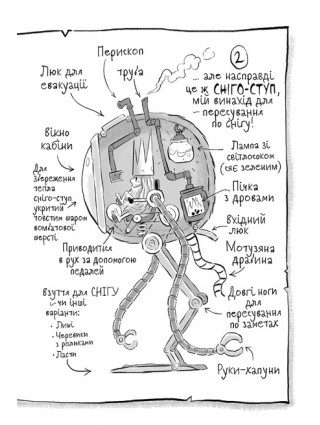 Перископ
труба
Люк для
евакуації
2
... але насправді
це ж СНІГО-СТУП,
мій винахід для
пересування
по снігу!
Вікно
кабіни
Лампа зі
світлосоком
(сяє зеленим)
Для
збереження
тепла
сніго-ступ
укритий
товстим шаром
вомбатової
шерсті
Пічка
з дровами
Вхідний
люк
Мотузяна
драбина
Приводиться
в рух за допомогою
педалей
Взуття для СНІГУ
чи інші
варіанти:
• Лижі
• Черевики
з роликами
• Ласти
Довгі ноги
для
пересування
по заметах
Руки-хапуни